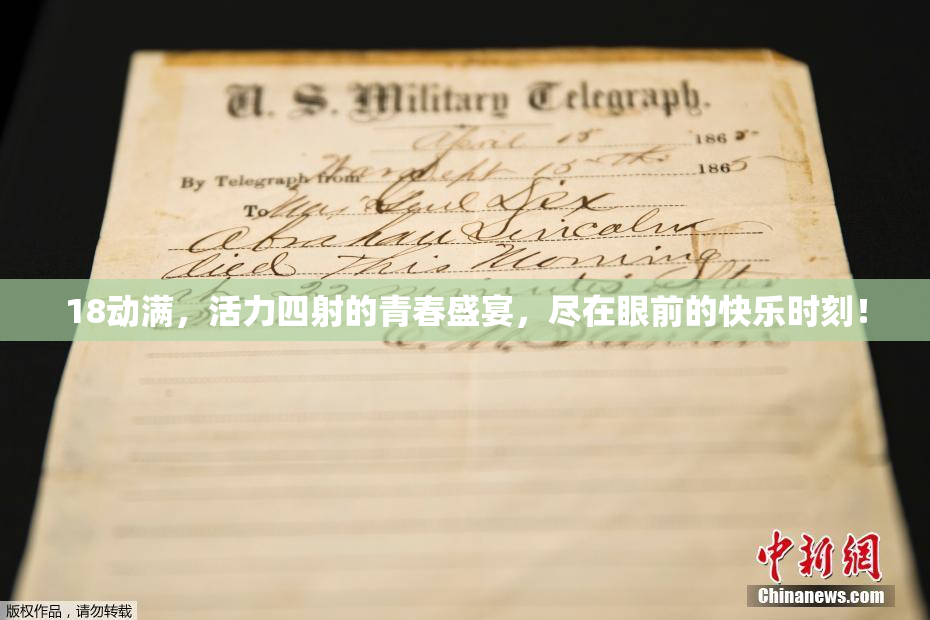 U. S. Military Telegraph.
April 15 1865
By Telegraph from War Dept 15th 1865
To Maj Genl Dix
Abraham Lincoln
died This Morning
at 22 minutes after
18动满，活力四射的青春盛宴，尽在眼前的快乐时刻！
E. M. Stanton
中新网
Chinanews.com
版权作品，请勿转载